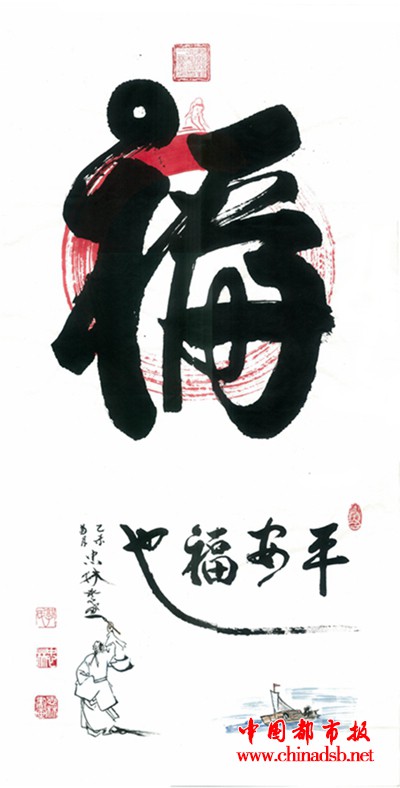 福
平安福也
乙未
中国都市报
www.chinadsb.net